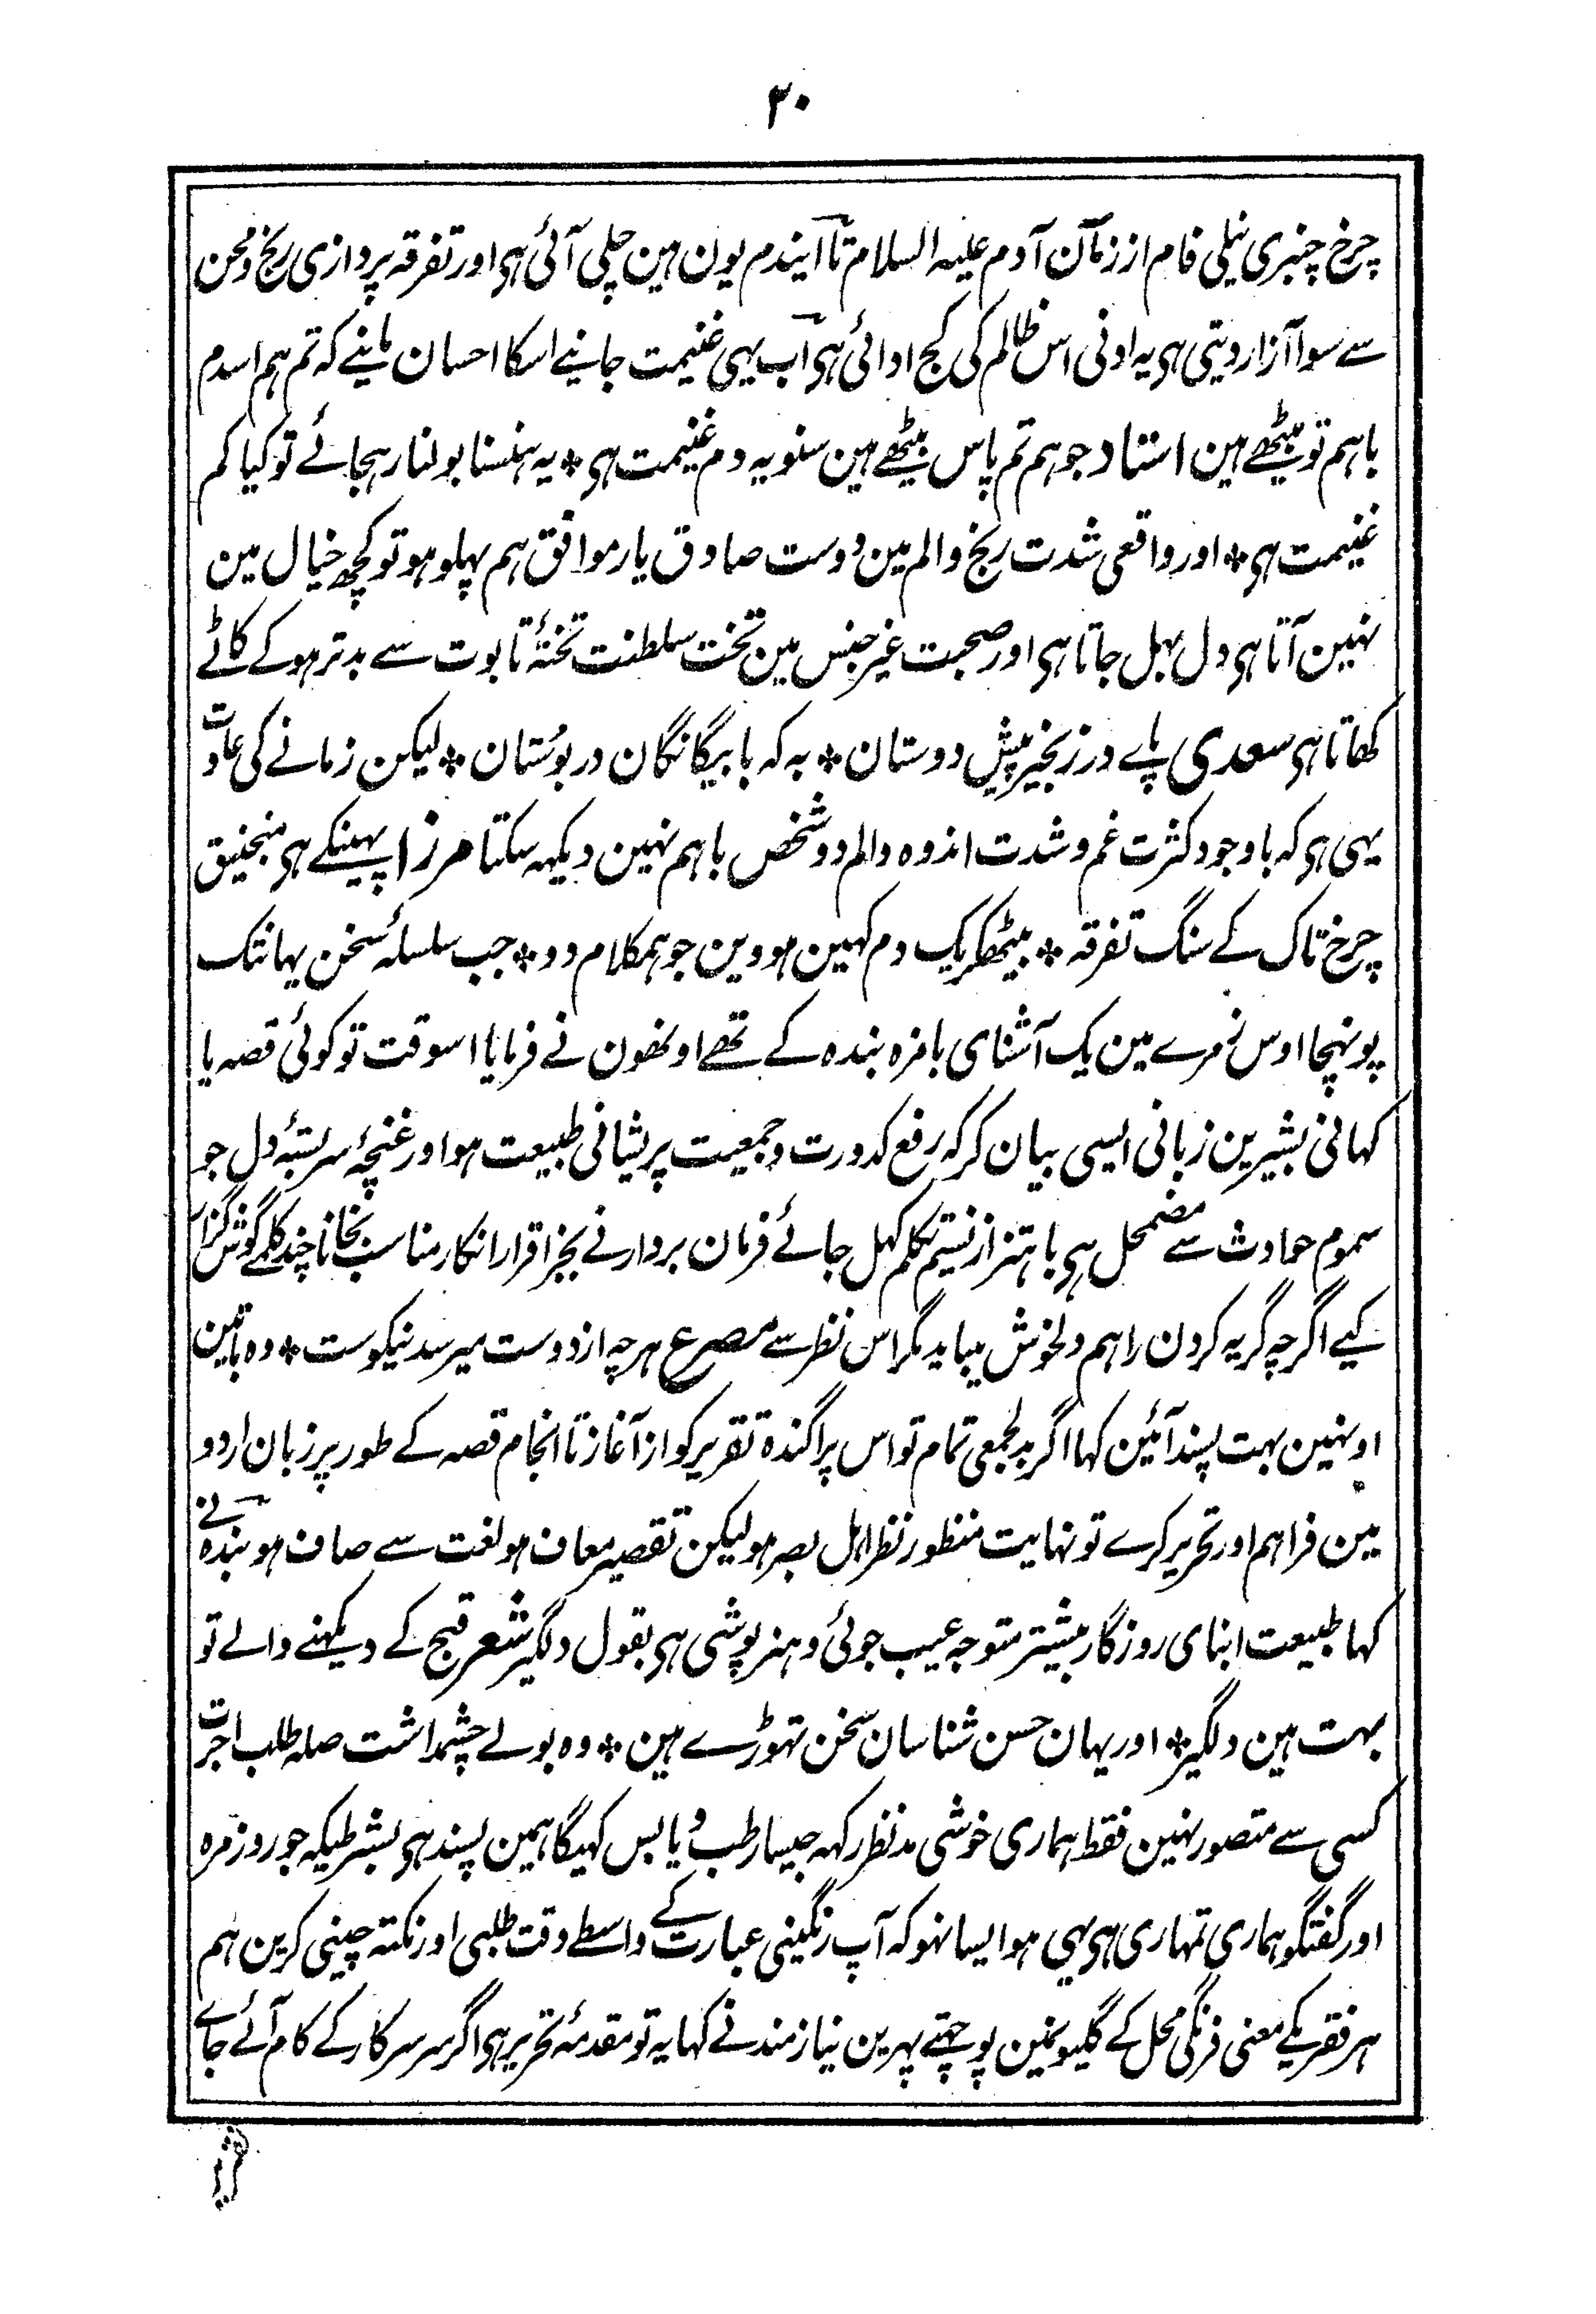 ۳۰
چرخ چنبری نیلی فام از زمان آدم علیہ السلام تا ایندم یون ہین چلی آئی ہی اور تفرقہ پردازی رنج و محن
سے سوا آزار دیتی ہی یہ ادنی اس ظالم کی کج ادائی ہی اب یہی غنیمت جانیے اسکا احسان مانیے کہ تم ہم اسدم
باہم تو بیٹھے ہین استاد جو ہم تم پاس بیٹھے ہین سنو یہ دم غنیمت ہی * یہ ہنسنا بولنا رہجائے تو کیا کم
غنیمت ہی * اور واقعی شدت رنج والم مین دوست صادق یار موافق ہم پہلو ہو تو کچھ خیال مین
نہین آتا ہی دل بہل جاتا ہی اور صحبت غیر جنس مین تخت سلطنت تختۂ تابوت سے بدتر ہو کے کاٹے
کھاتا ہی سعدی پاے در زنجیر پیش دوستان * بہ کہ با بیگانگان در بوستان * لیکن زمانے کی عادت
یہی ہی کہ باوجود کثرت غم و شدت اندوہ والم دو شخص باہم نہین دیکہہ سکتا مرزا پہینکے ہی منجنیق
چرخ تاک کے سنگ تفرقہ * بیٹھکر یک دم کہین ہووین جو ہمکلام دو * جب سلسلۂ سخن یہانتک
پونہچا اوس زمرے مین یک آشنای بامزہ بندہ کے تھے اونھون نے فرمایا اسوقت تو کوئی قصہ یا
کہانی بشیرین زبانی ایسی بیان کر کہ رفع کدورت و جمعیت پریشانی طبیعت ہو اور غنچۂ سربستۂ دل جو
سموم حوادث سے مضمحل ہی باہتزاز نسیم تکلم کہل جائے فرمان بردار نے بجز اقرار انکار مناسب نجانا چند کلمے گوش گزار
کیے اگرچہ گریہ کردن را ہم دلخوش میباید مگر اس نظر سے مصرع ہرچہ از دوست میرسد نیکوست * وہ باتین
اونہین بہت پسند آئین کہا اگر بدلجمعی تمام تو اس پراگندہ تقریر کو از آغاز تا انجام قصہ کے طور پر زبان اردو
مین فراہم اور تحریر کرے تو نہایت منظور نظر اہل بصر ہو لیکن تقصیر معاف ہو لغت سے صاف ہو بندہ نے
کہا طبیعت ابنای روزگار بیشتر متوجہ عیب جوئی و ہنر پوشی ہی بقول دلگیر شعر قبح کے دیکہنے والے تو
بہت ہین دلگیر * اور یہان حسن شناسان سخن تہوڑے ہین * وہ بولے چشمداشت صلہ طلب اجرت
کسی سے متصور نہین فقط ہماری خوشی مد نظر رکہہ جیسا رطب و یابس کہیگا ہمین پسند ہی بشرطیکہ جو روز مرہ
اور گفتگو ہماری تمہاری ہی یہی ہو ایسا نہو کہ آپ رنگینی عبارت کے واسطے دقت طلبی اور نکتہ چینی کرین ہم
ہر فقریکے معنی فرنگی محل کے گلیونمین پوچہتے پہرین نیازمند نے کہا یہ تو مقدمۂ تحریر ہی اگر سر سرکار کے کام آئے جاے